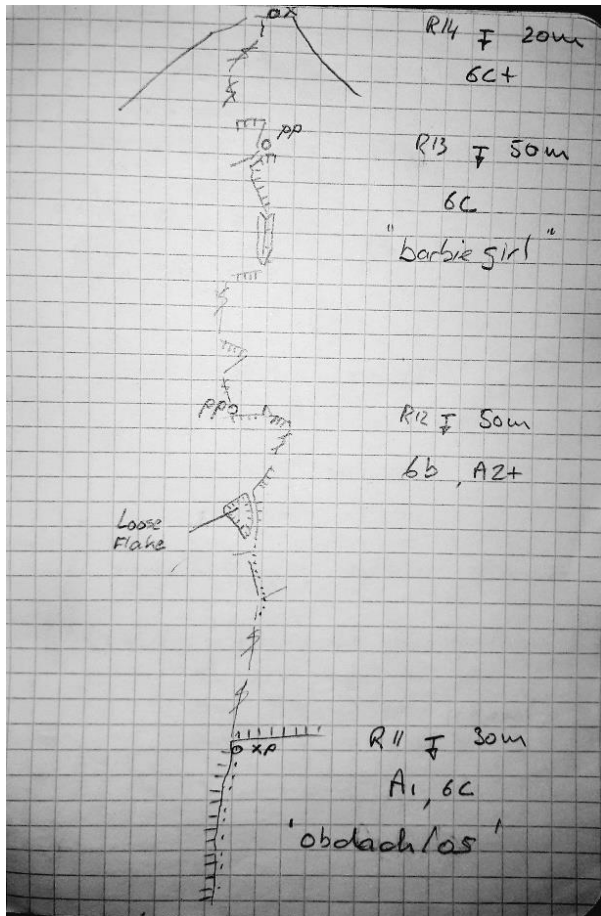 OX
R14 ↧ 20m
6C+
PP
R13 ↧ 50m
6C
"barbie girl"
PPO
R12 ↧ 50m
6b, A2+
Loose
Flake
O XP
R11 ↧ 30m
A1, 6C
'obdachlos'